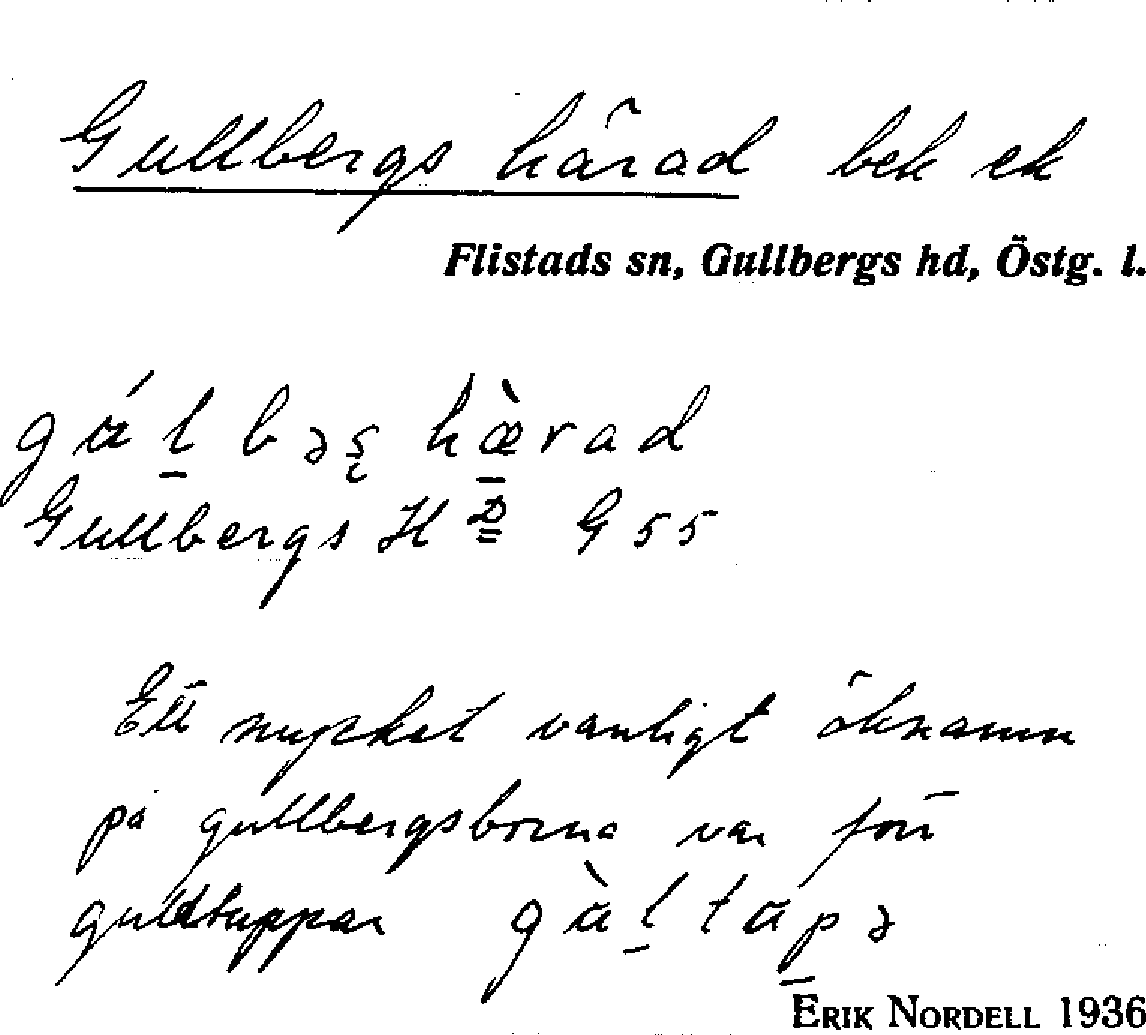 Gullbergs härad bek ek
Flistads sn, Gullbergs hd, Östg. l.
gál̲ bəş hæ̲̀rad
Gullbergs HD G 55
Ett mycket vanligt öknamn
på gullbergsborna var förr
guldtuppar gàl̲tap̲ə
ERIK NORDELL 1936